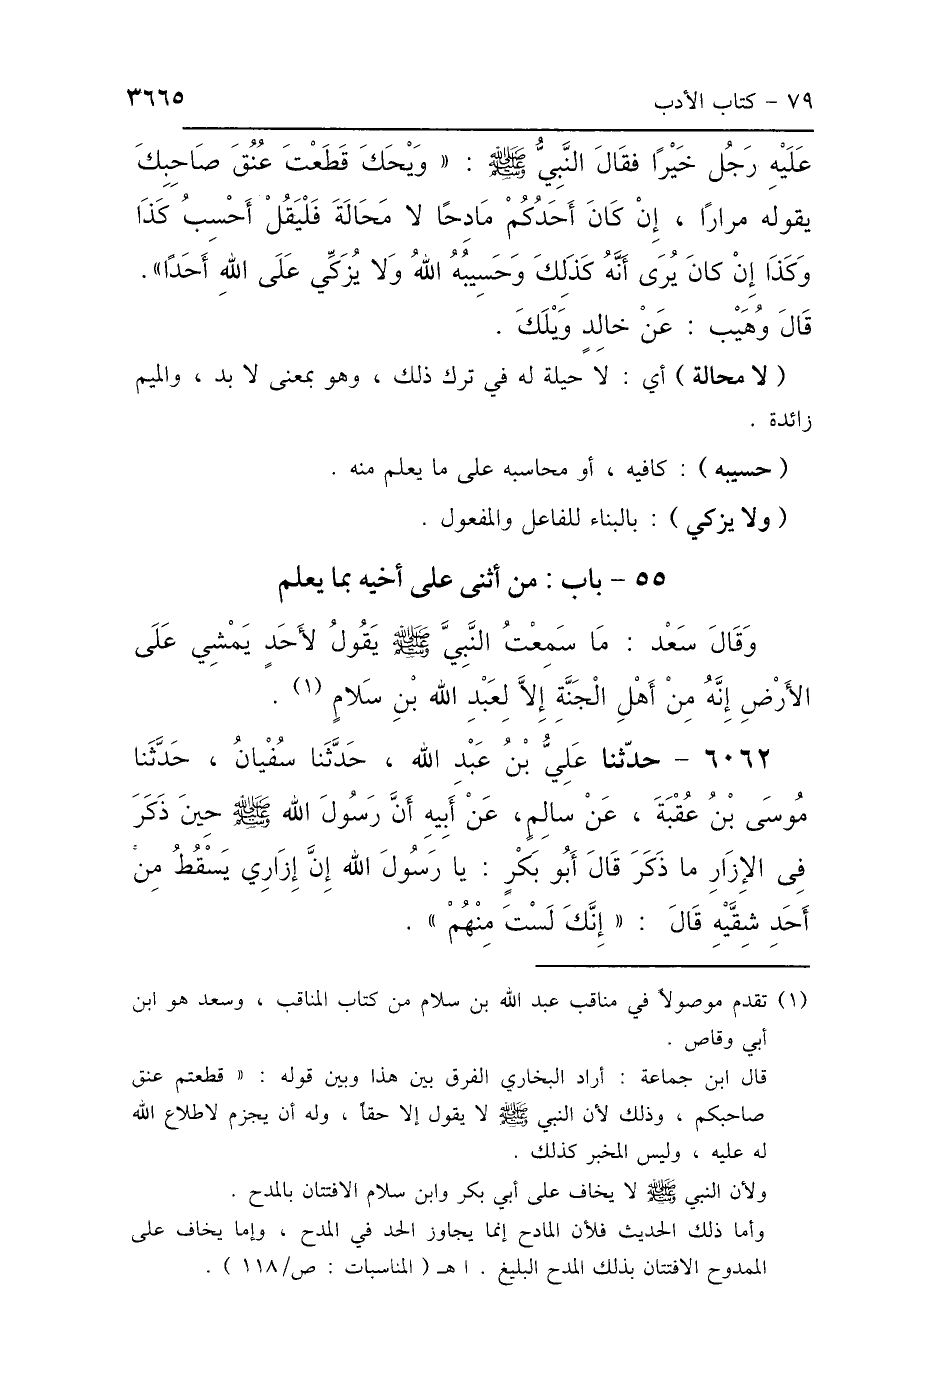 ٧٩ - كتاب الأدب ٣٦٦٥
عَلَيْهِ رَجُلٌ خَيْرًا فقَالَ النَّبِيُّ ﷺ : « وَيْحَكَ قَطَعْتَ عُنُقَ صَاحِبِكَ
يقوله مرارًا ، إِنْ كَانَ أَحَدُكُمْ مَادِحًا لا مَحَالَةَ فَلْيَقُلْ أَحْسِبُ كَذَا
وَكَذَا إِنْ كانَ يُرَى أَنَّهُ كَذَلِكَ وَحَسِيبُهُ اللهُ وَلا يُزَكِّي عَلَى اللهِ أَحَدًا».
قَالَ وُهَيْب : عَنْ خالِدٍ وَيْلَكَ .
( لا محالة ) أي : لا حيلة له في ترك ذلك ، وهو بمعنى لا بد ، والميم
زائدة .
( حسيبه ) : كافيه ، أو محاسبه على ما يعلم منه .
( ولا يزكي ) : بالبناء للفاعل والمفعول .
٥٥ - باب : من أثنى على أخيه بما يعلم
وَقَالَ سَعْد : مَا سَمِعْتُ النَّبِيَّ ﷺ يَقُولُ لأَحَدٍ يَمْشِي عَلَى
الأَرْضِ إِنَّهُ مِنْ أَهْلِ الْجَنَّةِ إِلاَّ لِعَبْدِ الله بْنِ سَلامٍ (١) .
٦٠٦٢ - حدّثنا عَلِيُّ بْنُ عَبْدِ الله ، حَدَّثَنا سُفْيانُ ، حَدَّثَنا
مُوسَى بْنُ عُقْبَةَ ، عَنْ سالِمٍ، عَنْ أَبِيهِ أَنَّ رَسُولَ الله ﷺ حِينَ ذَكَرَ
فِى الإِزَارِ ما ذَكَرَ قَالَ أَبُو بَكْرٍ : يا رَسُولَ الله إِنَّ إِزَارِي يَسْقُطُ مِنْ
أَحَدِ شِقَّيْهِ قَالَ : « إِنَّكَ لَسْتَ مِنْهُمْ » .
(١) تقدم موصولاً في مناقب عبد الله بن سلام من كتاب المناقب ، وسعد هو ابن
أبي وقاص .
قال ابن جماعة : أراد البخاري الفرق بين هذا وبين قوله : « قطعتم عنق
صاحبكم ، وذلك لأن النبي ﷺ لا يقول إلا حقاً ، وله أن يجزم لاطلاع الله
له عليه ، وليس المخبر كذلك .
ولأن النبي ﷺ لا يخاف على أبي بكر وابن سلام الافتتان بالمدح .
وأما ذلك الحديث فلأن المادح إنما يجاوز الحد في المدح ، وإما يخاف على
الممدوح الافتتان بذلك المدح البليغ . ا هـ ( المناسبات : ص/١١٨ ) .